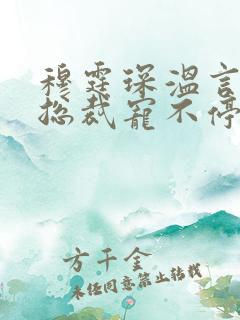 穆霆琛温言
总裁宠不停
方千金
未经同意禁止转载